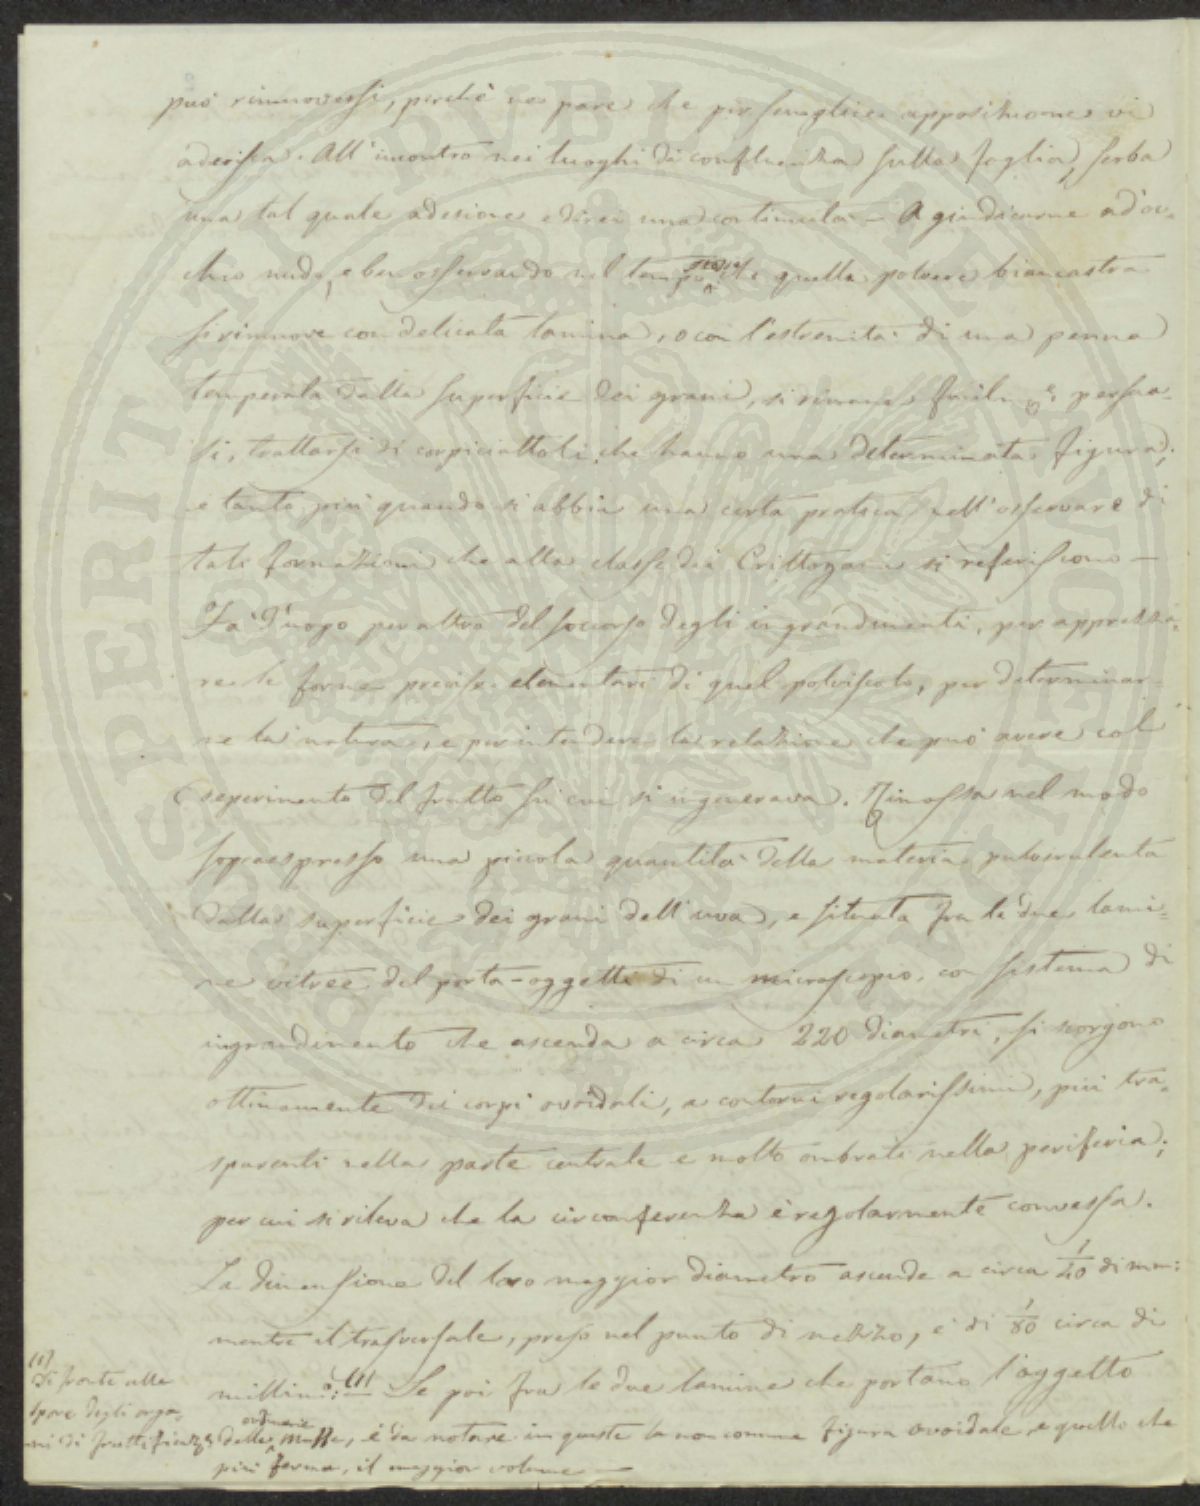 può rimuoversi, perchè ne pare che per semplice apposizione vi
aderisca. All'incontro nei luoghi di confluenza sulla foglia, serba
una tal quale adesione e direi una continuita — A giudicarne ad oc-
chio nudo, e ben osservando nel tempo stesso che quella polvere biancastra
si rimuove con delicata lamina, o con l'estremità di una penna
temperata dalla superficie dei grani, si rimane facilm.e persua-
si, trattarsi di corpicciattoli che hanno una determinata figura;
e tanto più quando si abbia una certa pratica nell'osservare di
tali formazioni che alla classe dei Crittogami si riferiscono —
Fa d'uopo per altro del soccorso degli ingrandimenti, per apprezza-
re le forme precise elementari di quel polviscolo, per determinar-
ne la natura, e per intendere la relazione che può avere col
deperimento del frutto su cui si ingenerava. Rimossa nel modo
sopraespresso una piccola quantità della materia pulverulenta
dalla superficie dei grani dell'uva, e situata fra le due lami-
ne vitree del porta-oggetti di un microscopio, con sistema di
ingrandimento che ascenda a circa 220 diametri, si scorgono
ottimamente dei corpi ovoidali, a contorni regolarissimi, più tra-
sparenti nella parte centrale e molto ombrati nella periferia;
per cui si rileva che la circonferenza è regolarmente convessa.
La dimensione del loro maggior diametro ascende a circa 1/40 di mm:
mentre il trasversale, preso nel punto di mezzo, è di 1/80 circa di
millim: (1) — Se poi fra le due lamine che portano l'oggetto
(1)
Di fronte alle
spore degli orga-
ni di fruttificaz.e delle ordinarie Muffe, è da notare in queste la non comune figura ovoidale, e quello che
più ferma, il maggior volume —
SPERITAT PVBLICVM